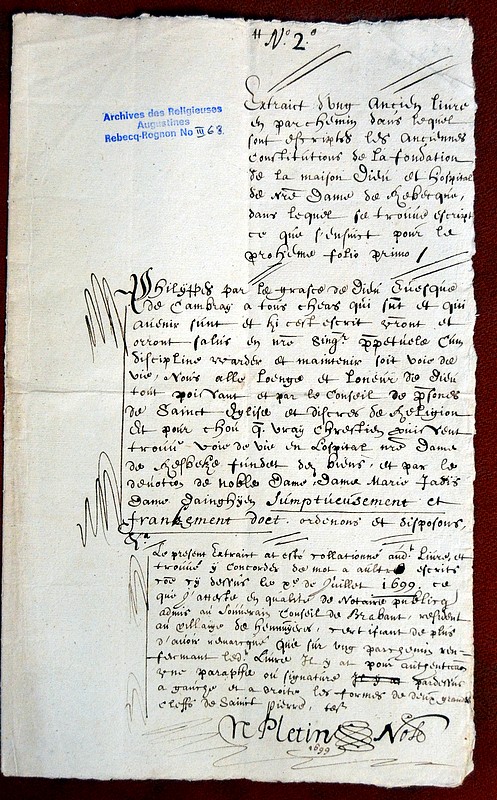 N.º 2.º
Archives des Religieuses
Augustines
Rebecq-Rognon No III 68.
Extraict d'ung Ancien livre
en parchemin dans lequel
sont escriptes les Anciennes
Constitutions de la fondation
de la maison Dieu et hospital
de nre Dame de Rebecque,
dans lequel se trouue escript
ce que s'ensuict pour le
proheme folio primo /
Philippes par le grasce de Dieu Euesque
de Cambray a tous cheas qui sunt et qui
auenir sunt et ki cest escrit veront et
orront salus en nre Singr ppetuele Cum
discipline warder et maintenir soit voie de
vie, Nous alle loenge et loneur de Dieu
tout poissant et par le Conseil de psones
de Sainct Eglise et discres de Religion
Et pour chou q vray Chrestien puissent
trouuer voie de vie en Lospital nre Dame
de Rebeke fundet de biens, et par le
deuotion de noble Dame, Dame Marie Jadis
Dame Dainghyen Sumptueusement et
frankement doet. ordenons et disposons,
Le present Extraict at esté collationné aud.t Liure, et
trouué y concorder de mot a aultre escrits
cõe cy dessus le xe de Juillet 1699. ce
que j'atteste en qualité de Notaire publicq
admis au Souuerain Conseil de Brabant, resident
au village de Hennuyeres, certifiant de plus
d'auoir remarcqué que sur ung parchemin ren-
fermant led.t Liure Il y at pour autenticq
vne paraphe ou signature pardessus
a gauche et a droite les formes de deux grandes
cleffs de Sainct Pierre, tes.
N Pletin Nots
1699